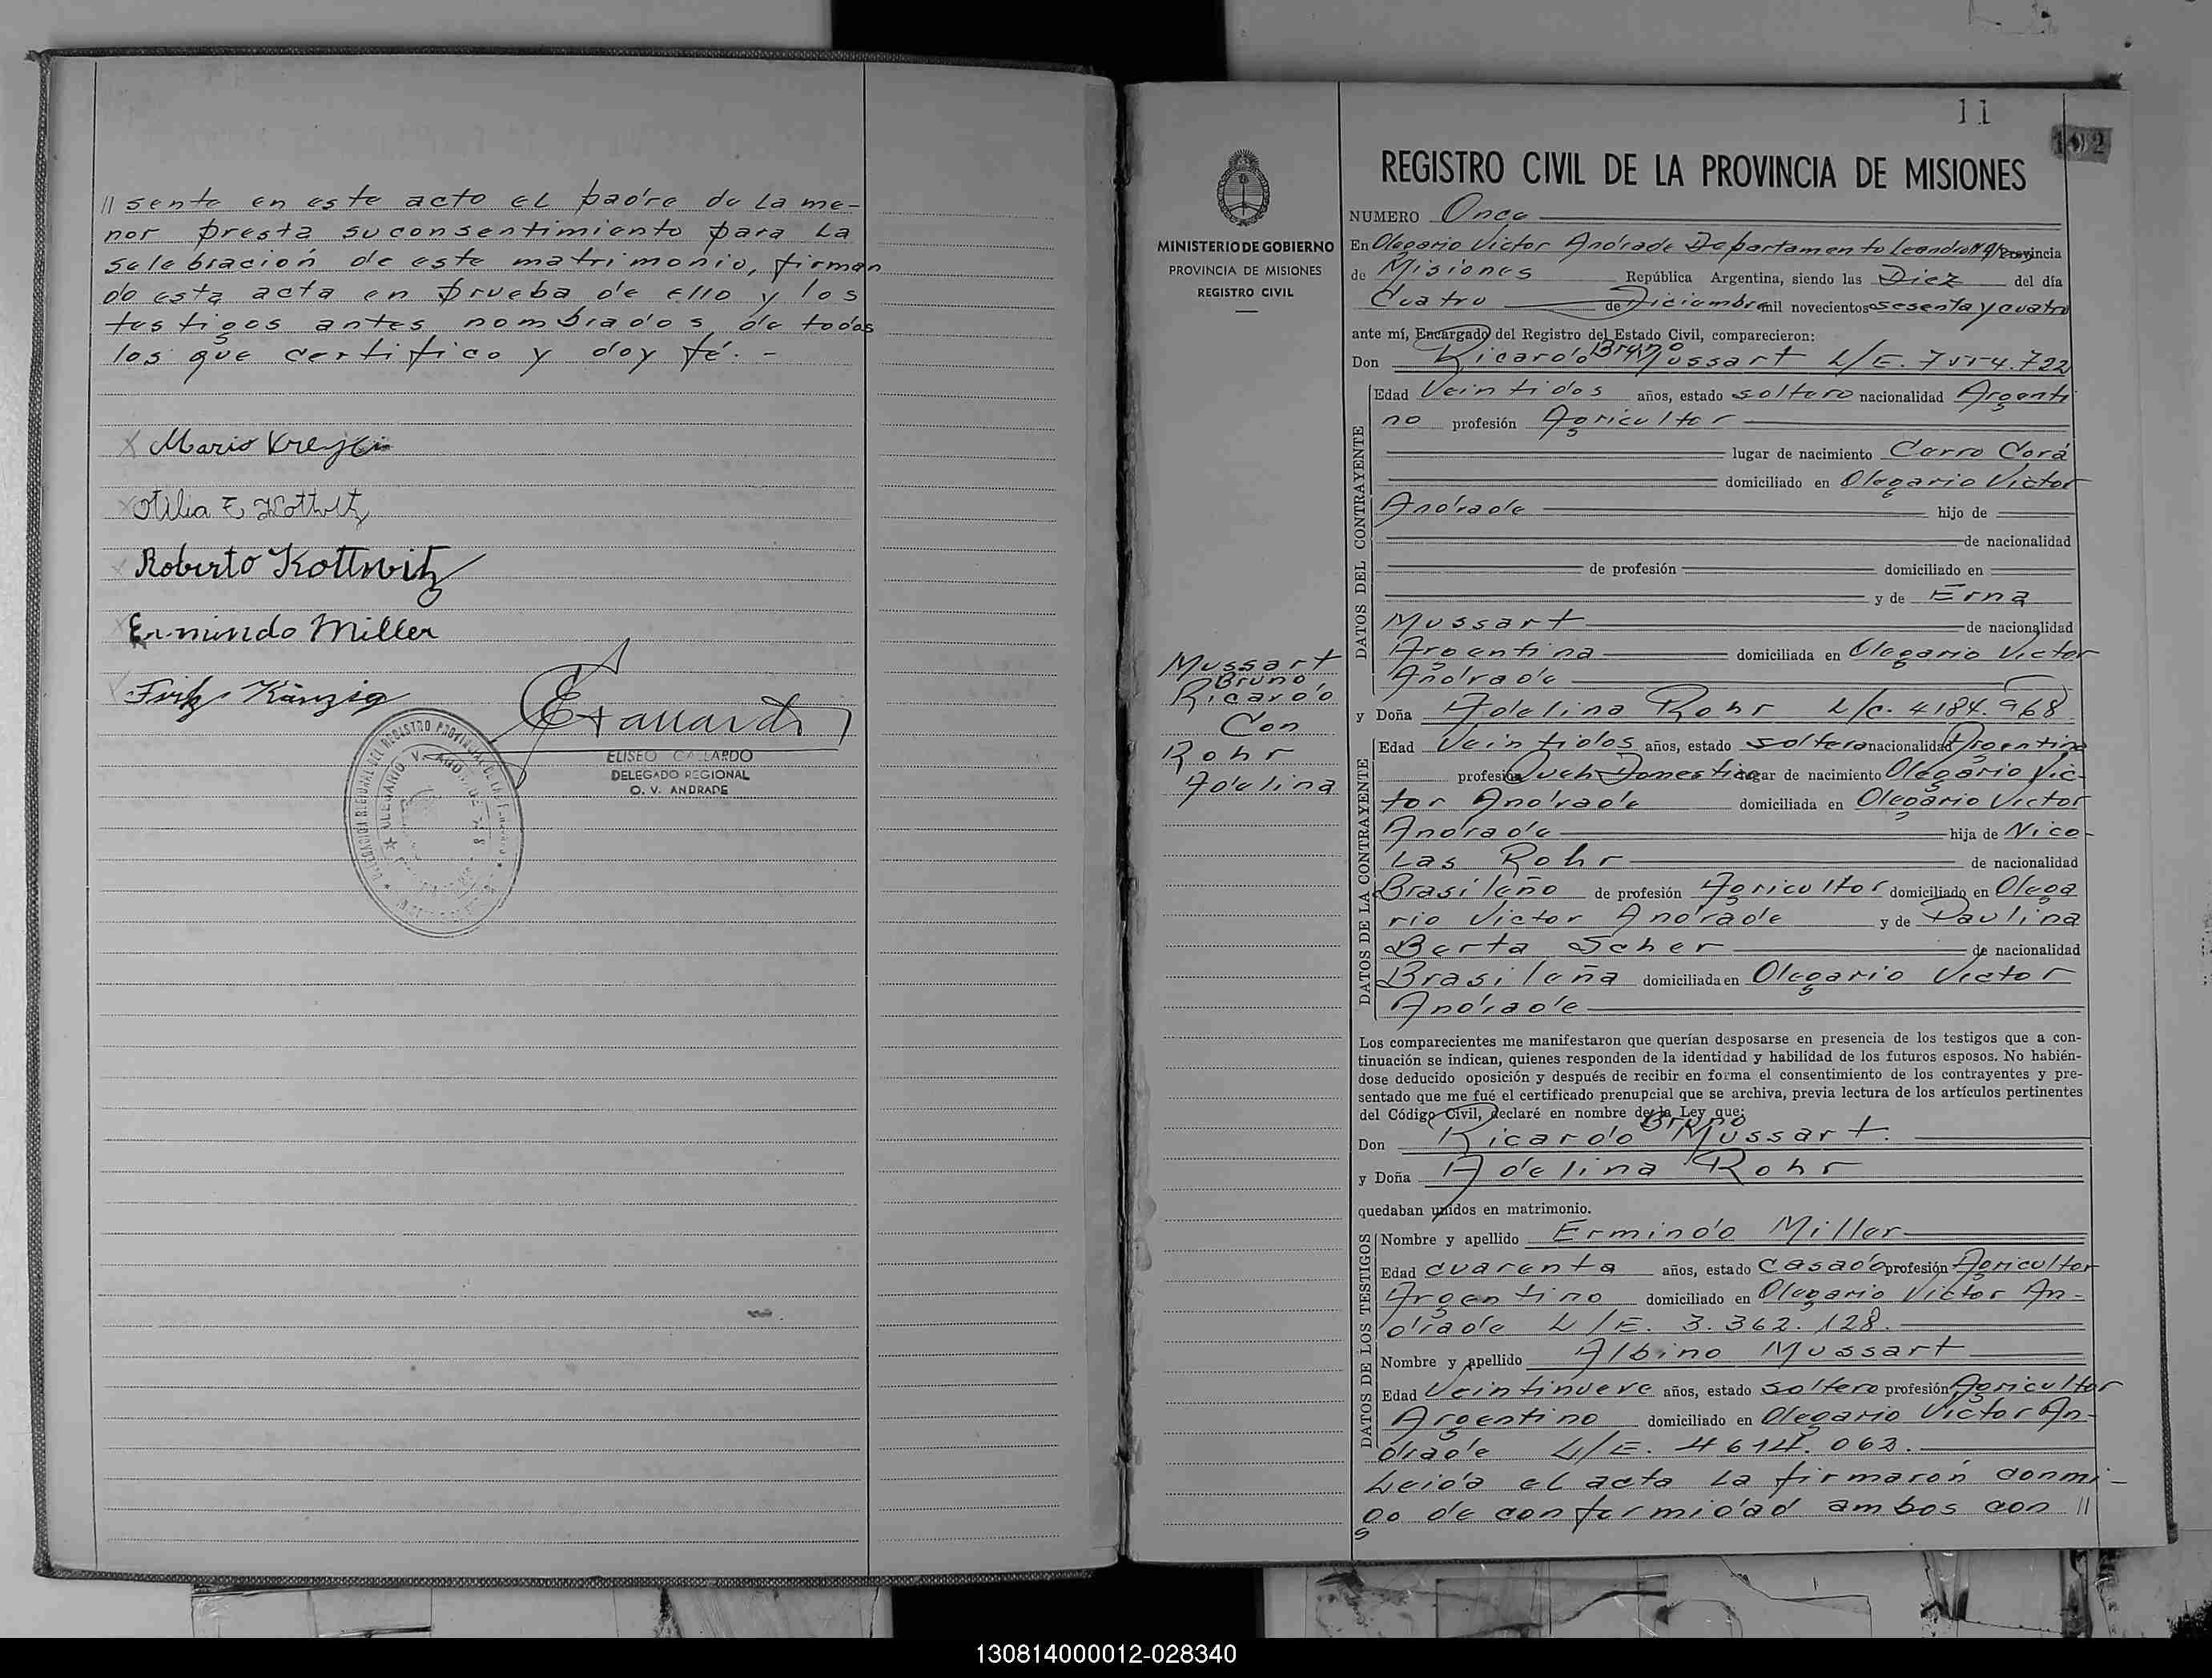 // sente en este acto el padre de la me-
nor presta su consentimiento para la
selebración de este matrimonio, firman
do esta acta en prueba de ello y los
testigos antes nombrados de todos
los que certifico y doy fé. -
Mario Kreyci
Otilia E Kottwitz
Roberto Kottwitz
Ermindo Miller
Fritz Känzig
ELISEO GALLARDO
DELEGADO REGIONAL
O. V. ANDRADE
11
102
MINISTERIO DE GOBIERNO
PROVINCIA DE MISIONES
REGISTRO CIVIL
Mussart
Bruno
Ricardo
Con
Rohr
Adelina
REGISTRO CIVIL DE LA PROVINCIA DE MISIONES
NUMERO Once
En Olegario Victor Andrade Departamento Leandro N. A. Provincia
de Misiones República Argentina, siendo las Diez del día
Cuatro de Diciembre mil novecientos sesenta y cuatro
ante mí, Encargado del Registro del Estado Civil, comparecieron:
Don Ricardo Bruno Mussart L/E. 7554.722
DATOS DEL CONTRAYENTE
Edad Veintidos años, estado soltero nacionalidad Argenti
no profesión Agricultor
lugar de nacimiento Cerro Corá
domiciliado en Olegario Victor
Andrade hijo de
de nacionalidad
de profesión domiciliado en
y de Erna
Mussart de nacionalidad
Argentina domiciliada en Olegario Victor
Andrade
y Doña Adelina Rohr L/C. 4184.968
DATOS DE LA CONTRAYENTE
Edad Veintidos años, estado soltera nacionalidad Argentina
profesión Queh. Domestico lugar de nacimiento Olegario Vic-
tor Andrade domiciliada en Olegario Victor
Andrade hija de Nico-
las Rohr de nacionalidad
Brasileño de profesión Agricultor domiciliado en Olega
rio Victor Andrade y de Paulina
Berta Scher de nacionalidad
Brasileña domiciliada en Olegario Victor
Andrade
Los comparecientes me manifestaron que querían desposarse en presencia de los testigos que a con-
tinuación se indican, quienes responden de la identidad y habilidad de los futuros esposos. No habién-
dose deducido oposición y después de recibir en forma el consentimiento de los contrayentes y pre-
sentado que me fué el certificado prenupcial que se archiva, previa lectura de los artículos pertinentes
del Código Civil, declaré en nombre de la Ley que:
Don Ricardo Bruno Mussart.
y Doña Adelina Rohr
quedaban unidos en matrimonio.
DATOS DE LOS TESTIGOS
Nombre y apellido Ermindo Miller
Edad cuarenta años, estado Casado profesión Agricultor
Argentino domiciliado en Olegario Victor An-
drade L/E. 3.362.128.
Nombre y apellido Albino Mussart
Edad Veintinueve años, estado soltero profesión Agricultor
Argentino domiciliado en Olegario Victor An-
drade L/E. 4614.062.
Leida el acta la firmarón conmi-
go de conformidad ambos con //
130814000012-028340